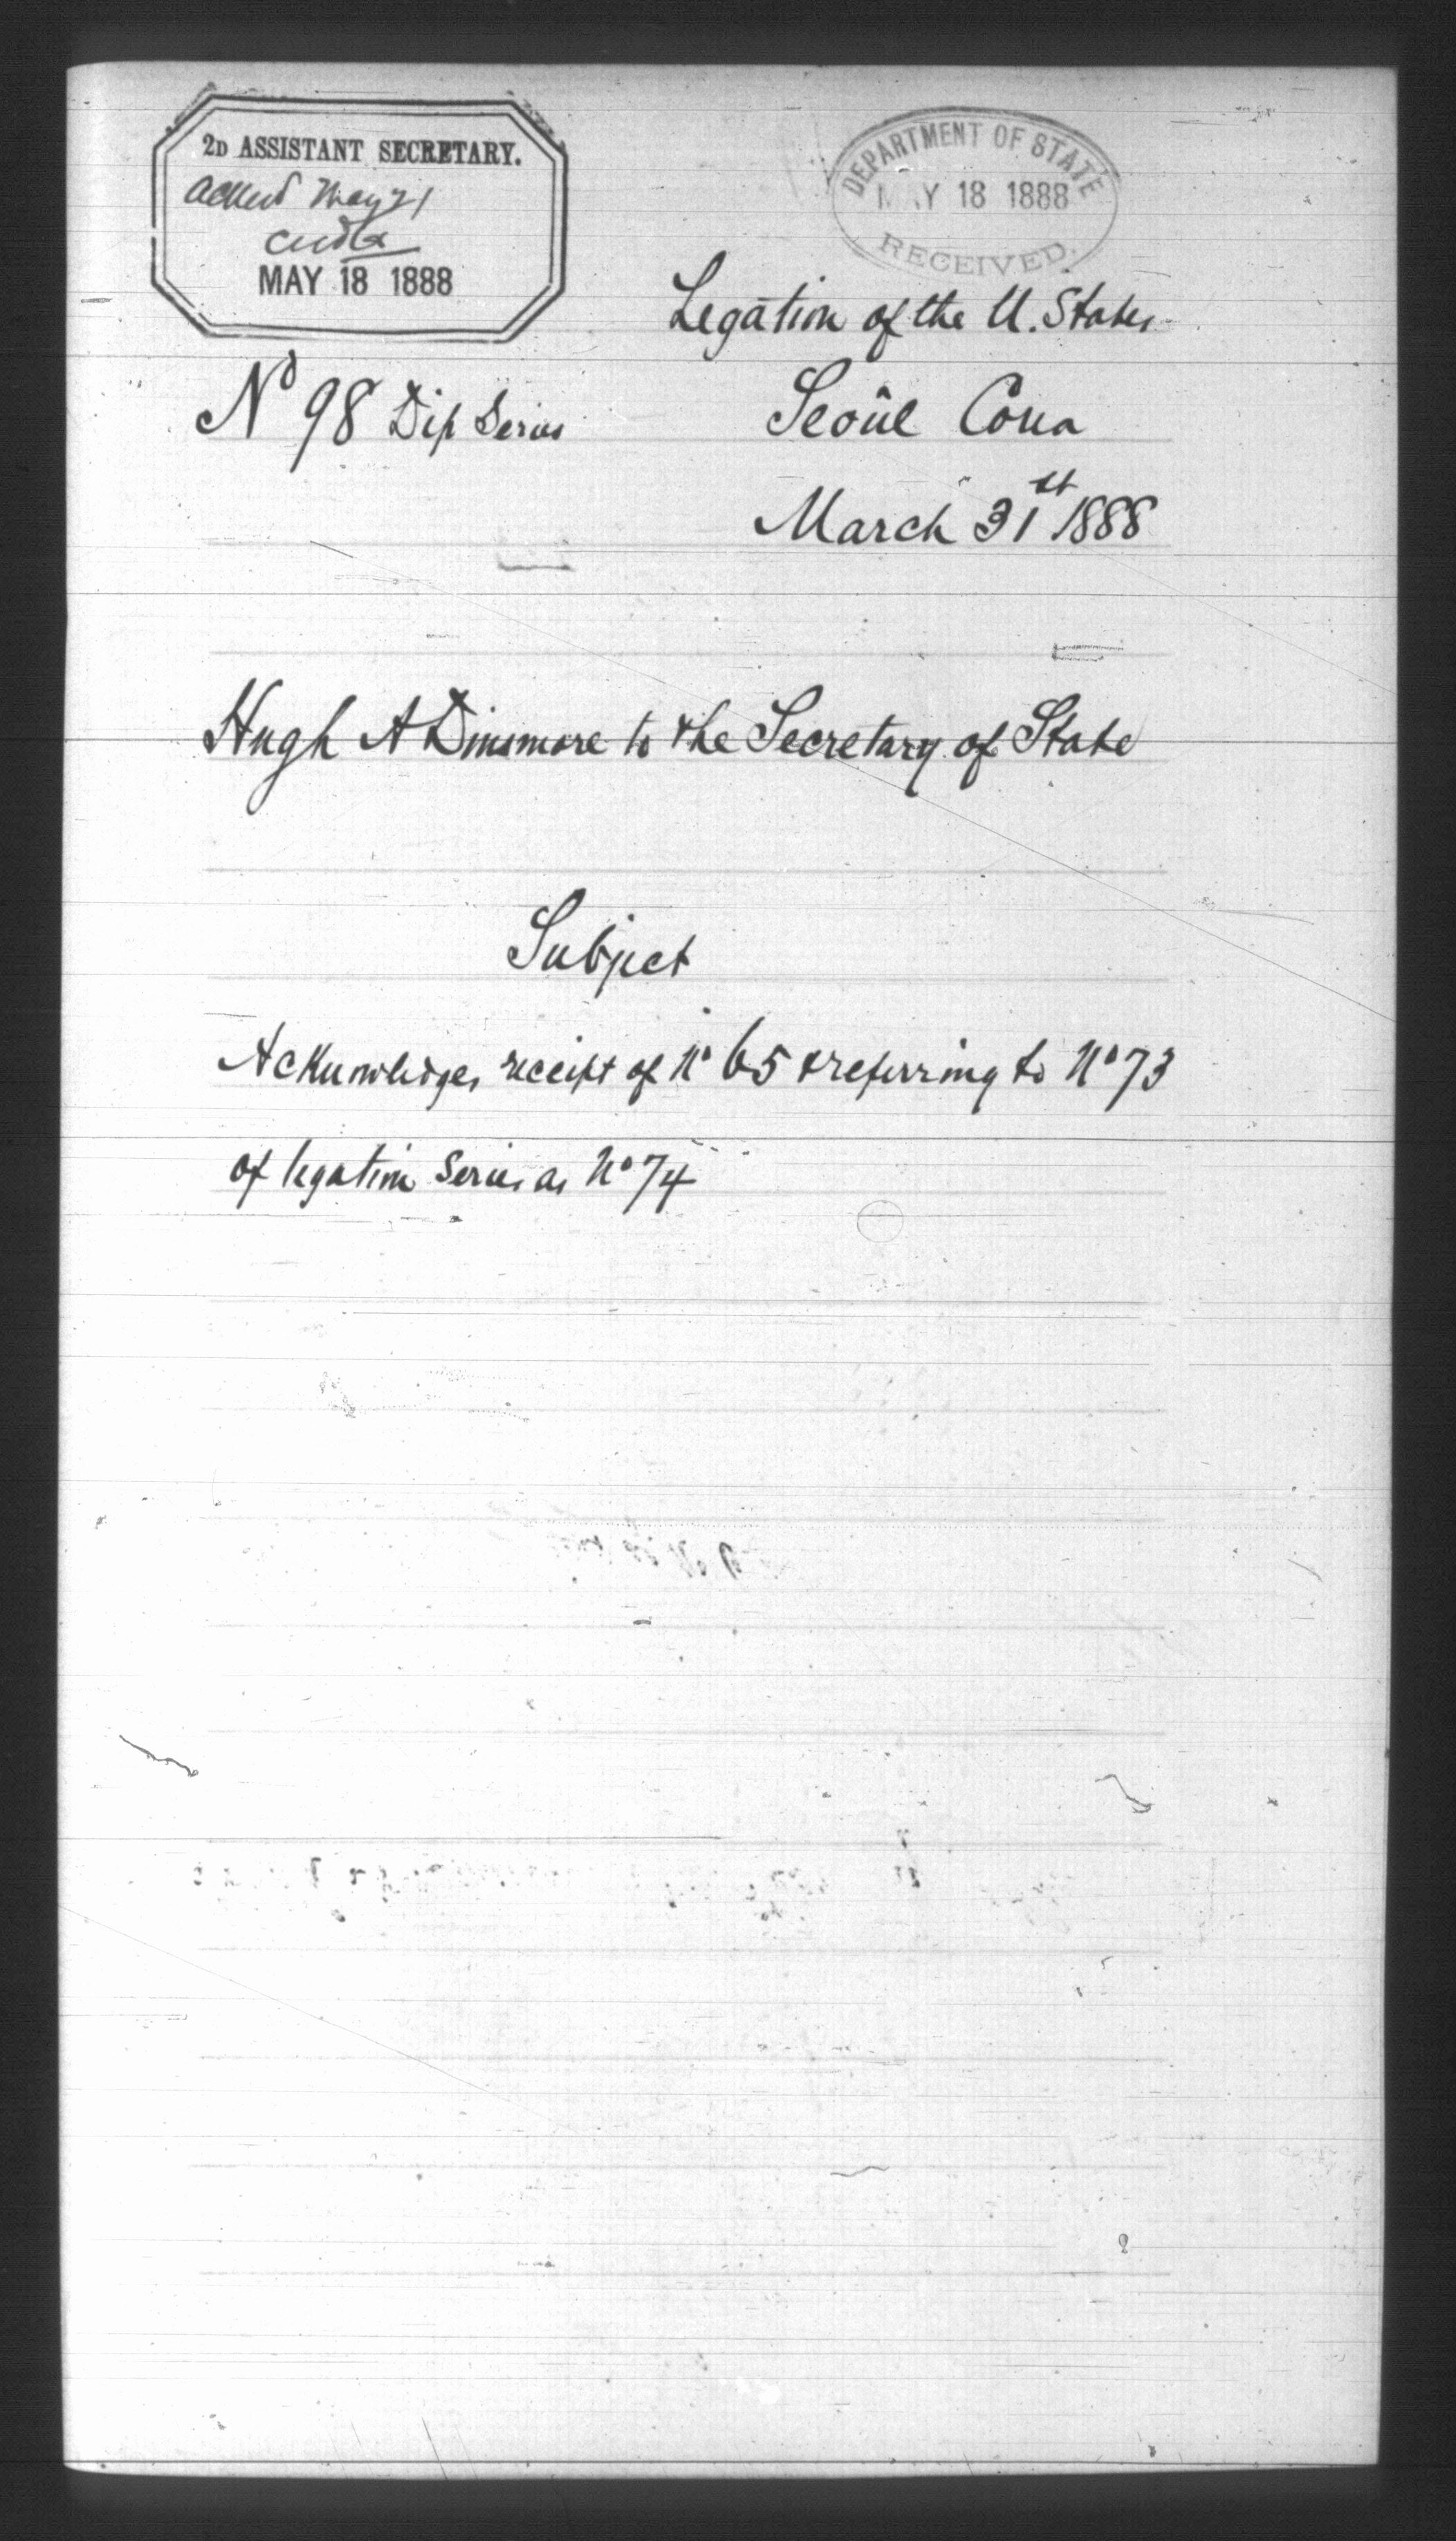 2D ASSISTANT SECRETARY.
May 21
MAY 18 1888
DEPARTMENT OF STATE
MAY 18 1888
RECEIVED.
Legation of the U. States
Nº 98 Dip Series
Seoûl Corea
March 31st 1888
Hugh A Dinsmore to the Secretary of State
Subject
Acknowledges receipt of Nº 65 & referring to Nº 73
of legation series as Nº 74